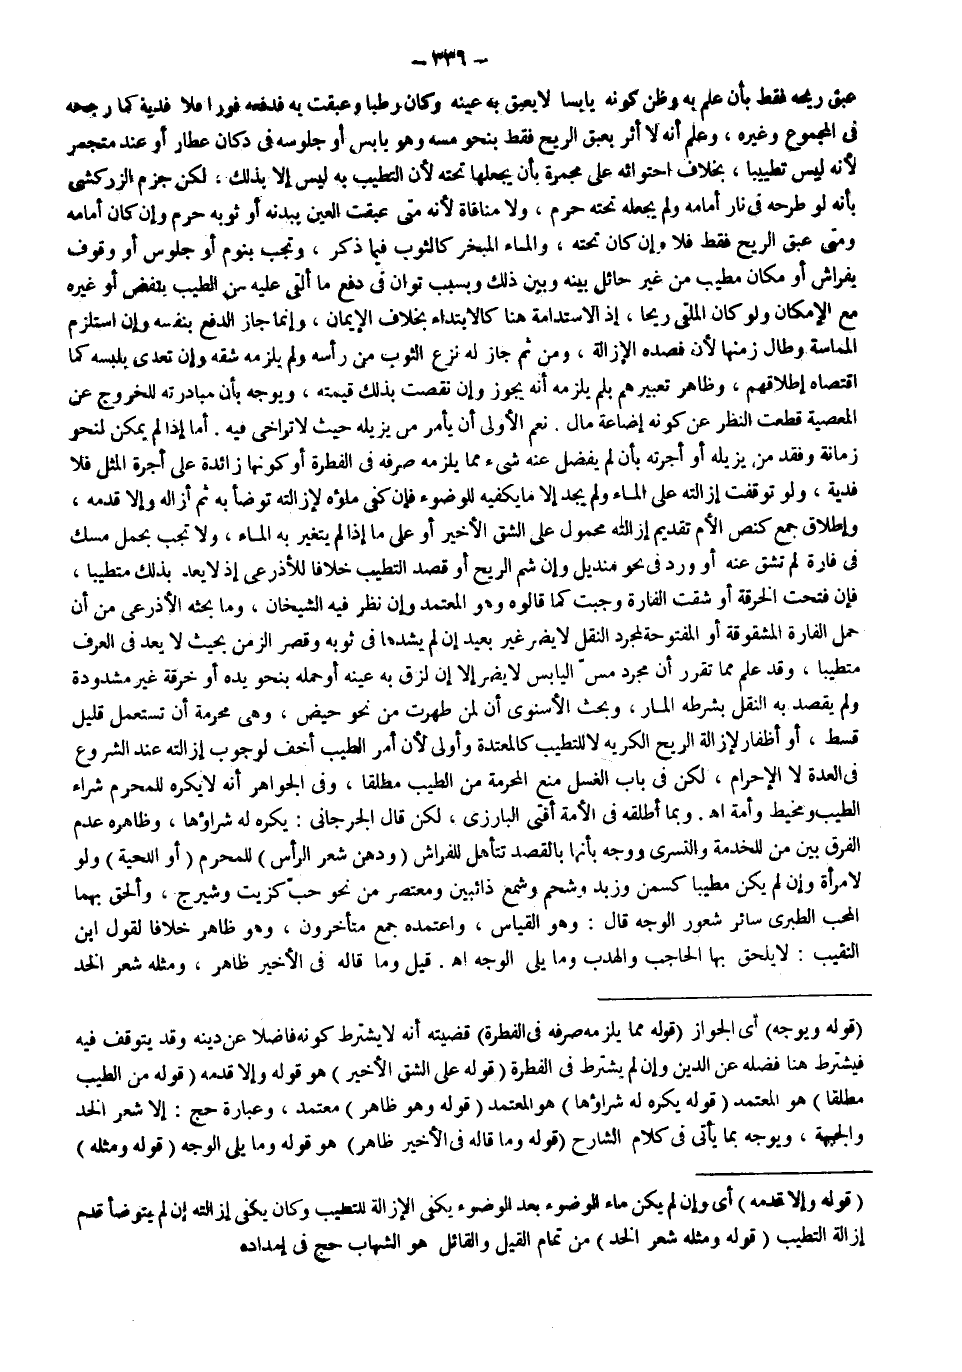 – ٣٣٦ –
عبق ريحه فقط بأن علم به وظن كونه يابسا لايعبق به عينه وكان رطبا وعبقت به فدفعه فورا فلا فدية كما رجحه
فى المجموع وغيره ، وعلم أنه لا أثر بعبق الريح فقط بنحو مسه وهو يابس أو جلوسه فى دكان عطار أو عند متجمر
لأنه ليس تطيبا ، بخلاف احتوائه على مجمرة بأن يجعلها تحته لأن التطيب به ليس إلا بذلك ، لكن جزم الزركشى
بأنه لو طرحه فى نار أمامه ولم يجعله تحته حرم ، ولا منافاة لأنه متى عبقت العين ببدنه أو ثوبه حرم وإن كان أمامه
ومتى عبق الريح فقط فلا وإن كان تحته ، والماء المبخر كالثوب فيما ذكر ، وتجب بنوم أو جلوس أو وقوف
بفراش أو مكان مطيب من غير حائل بينه وبين ذلك وبسبب توان فى دفع ما ألقى عليه من الطيب بنفض أو غيره
مع الإمكان ولو كان الملقى ريحا ، إذ الاستدامة هنا كالابتداء بخلاف الإيمان ، وإنما جاز الدفع بنفسه وإن استلزم
المماسة وطال زمنها لأن قصده الإزالة ، ومن ثم جاز له نزع الثوب من رأسه ولم يلزمه شقه وإن تعدى بلبسه كما
اقتضاه إطلاقهم ، وظاهر تعبيرهم بلم يلزمه أنه يجوز وإن نقصت بذلك قيمته ، ويوجه بأن مبادرته للخروج عن
المعصية قطعت النظر عن كونه إضاعة مال . نعم الأولى أن يأمر من يزيله حيث لاتراخى فيه . أما إذا لم يمكن لنحو
زمانة وفقد من يزيله أو أجرته بأن لم يفضل عنه شىء مما يلزمه صرفه فى الفطرة أو كونها زائدة على أجرة المثل فلا
فدية ، ولو توقفت إزالته على الماء ولم يجد إلا مايكفيه للوضوء فإن كفى ملؤه لإزالته توضأ به ثم أزاله وإلا قدمه ،
وإطلاق جمع كنص الأم تقديم إزالته محمول على الشق الأخير أو على ما إذا لم يتغير به الماء ، ولا تجب بحمل مسك
فى فارة لم تشق عنه أو ورد فى نحو منديل وإن شم الريح أو قصد التطيب خلافا للأذرعى إذ لايعد بذلك متطيبا ،
فإن فتحت الخرقة أو شقت الفارة وجبت كما قالوه وهو المعتمد وإن نظر فيه الشيخان ، وما بحثه الأذرعى من أن
حمل الفارة المشقوقة أو المفتوحة لمجرد النقل لايضر غير بعيد إن لم يشدها فى ثوبه وقصر الزمن بحيث لا يعد فى العرف
متطيبا ، وقد علم مما تقرر أن مجرد مسّ اليابس لايضر إلا إن لزق به عينه أو حمله بنحو يده أو خرقة غير مشدودة
ولم يقصد به النقل بشرطه المار ، وبحث الأسنوى أن لمن طهرت من نحو حيض ، وهى محرمة أن تستعمل قليل
قسط ، أو أظفار لإزالة الريح الكريه لا للتطيب كالمعتدة وأولى لأن أمر الطيب أخف لوجوب إزالته عند الشروع
فى العدة لا الإحرام ، لكن فى باب الغسل منع المحرمة من الطيب مطلقا ، وفى الجواهر أنه لايكره للمحرم شراء
الطيب ومخيط وأمة اهـ . وبما أطلقه فى الأمة أفتى البارزى ، لكن قال الجرجانى : يكره له شراؤها ، وظاهره عدم
الفرق بين من للخدمة والتسرى ووجه بأنها بالقصد تتأهل للفراش ( ودهن شعر الرأس ) للمحرم ( أو اللحية ) ولو
لامرأة وإن لم يكن مطيبا كسمن وزبد وشحم وشمع ذائبين ومعتصر من نحو حبّ كزيت وشيرج ، وألحق بهما
المحب الطبرى سائر شعور الوجه قال : وهو القياس ، واعتمده جمع متأخرون ، وهو ظاهر خلافا لقول ابن
النقيب : لايلحق بها الحاجب والهدب وما يلى الوجه اهـ . قيل وما قاله فى الأخير ظاهر ، ومثله شعر الخد
(قوله ويوجه) أى الجواز (قوله مما يلزمه صرفه فى الفطرة) قضيته أنه لايشترط كونه فاضلا عن دينه وقد يتوقف فيه
فيشترط هنا فضله عن الدين وإن لم يشترط فى الفطرة ( قوله على الشق الأخير ) هو قوله وإلا قدمه ( قوله من الطيب
مطلقا ) هو المعتمد ( قوله يكره له شراؤها ) هو المعتمد ( قوله وهو ظاهر ) معتمد ، وعبارة حج : إلا شعر الخد
والجبهة ، ويوجه بما يأتى فى كلام الشارح (قوله وما قاله فى الأخير ظاهر) هو قوله وما يلى الوجه ( قوله ومثله )
( قوله وإلا قدمه ) أى وإن لم يكن ماء الوضوء بعد الوضوء يكفى الإزالة للتطيب وكان يكفى إزالته إن لم يتوضأ قدم
إزالة التطيب ( قوله ومثله شعر الخد ) من تمام القيل والقائل هو الشهاب حج فى إمداده